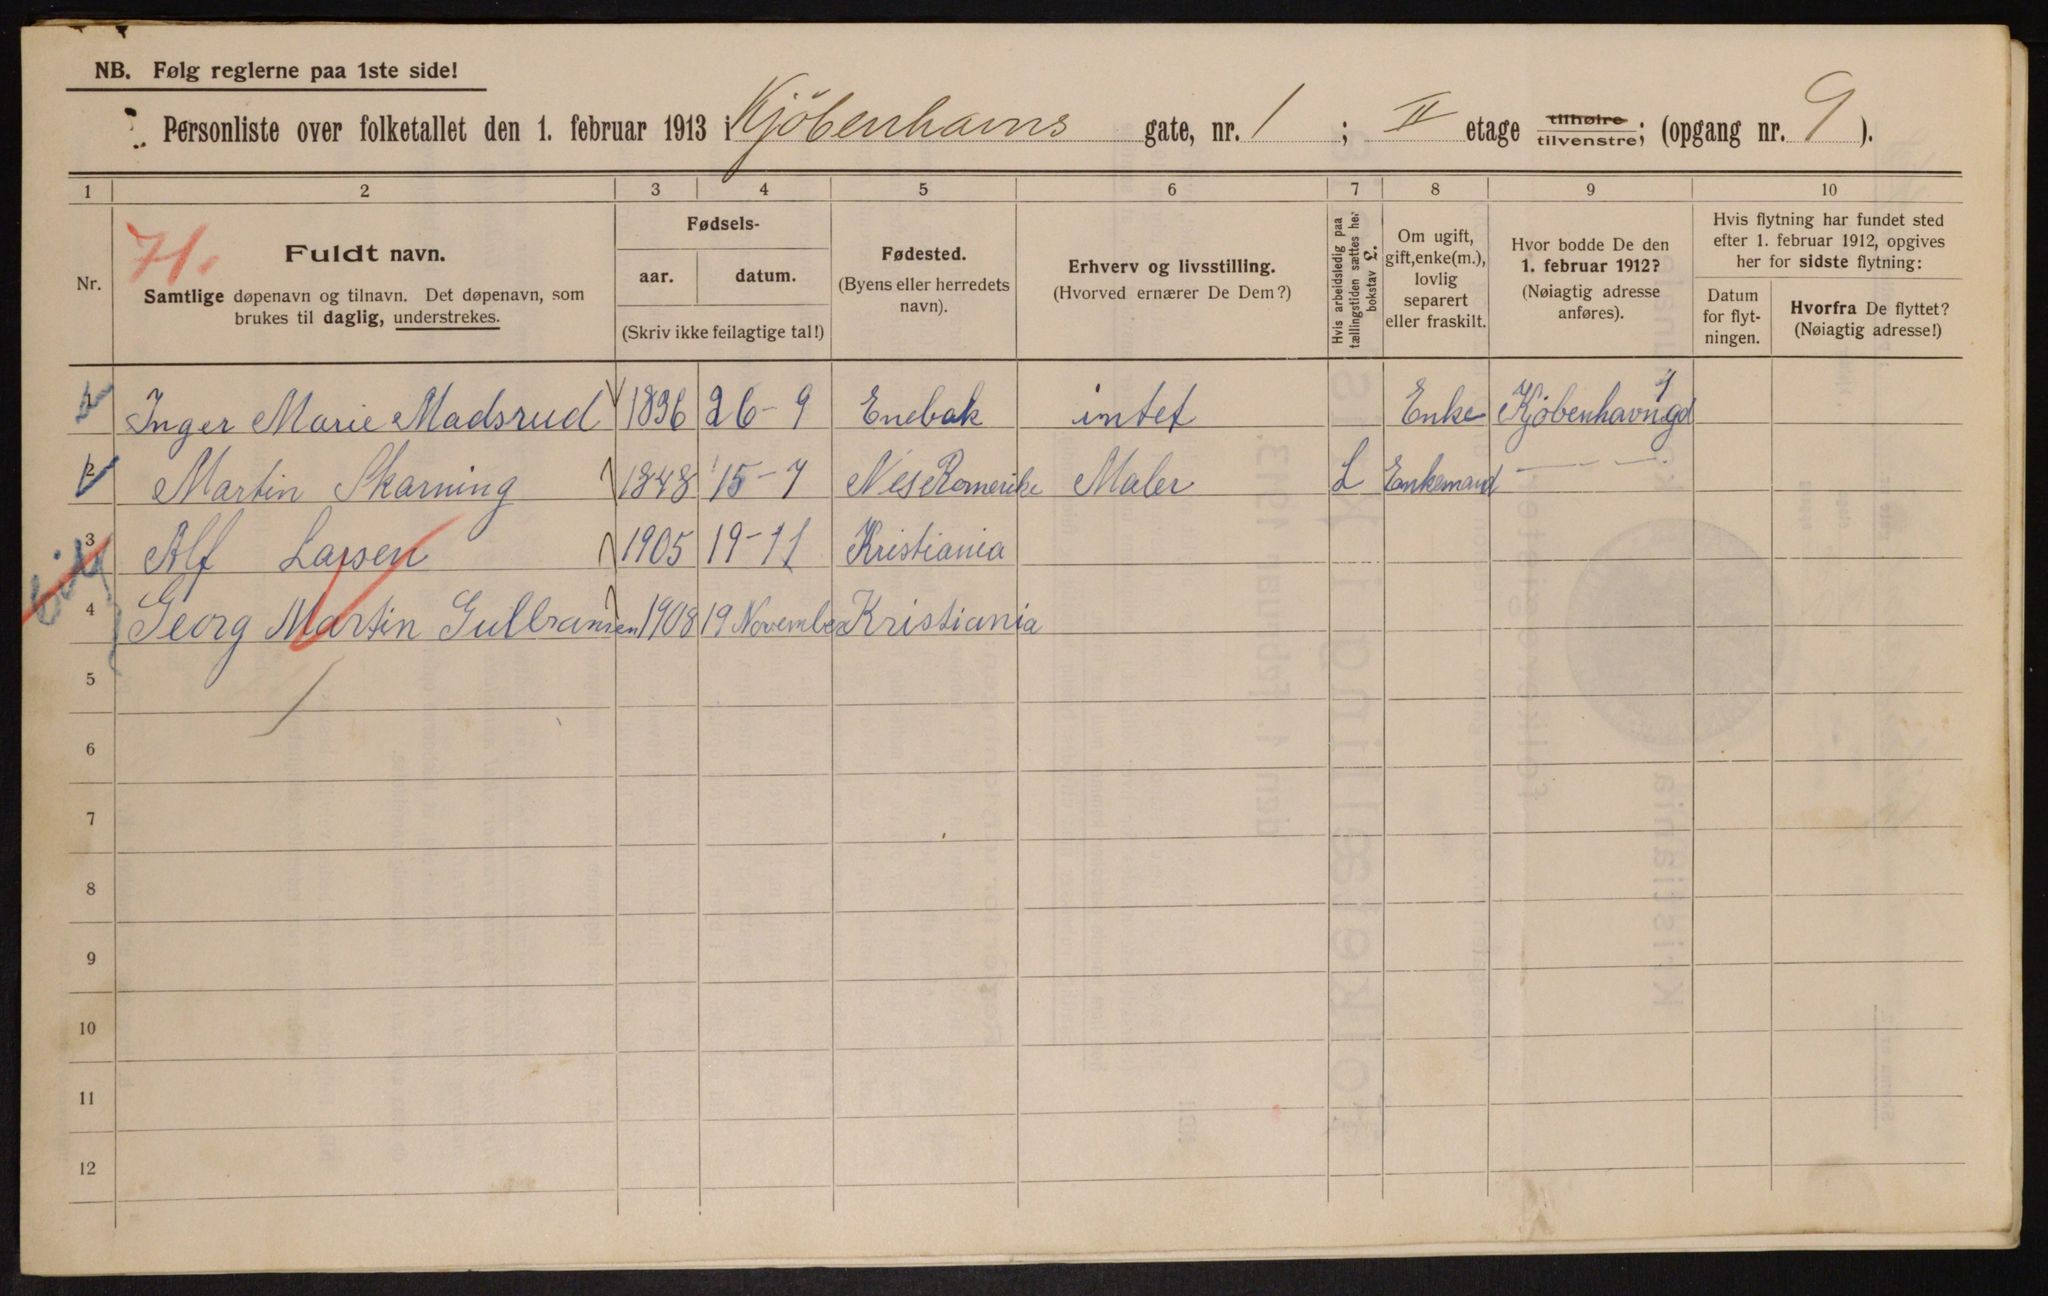 NB. Følg reglerne paa 1ste side!
Personliste over folketallet den 1. februar 1913 i Kjöbenhavns gate, nr. 1 ; II etage tilhøire tilvenstre; (opgang nr. 9 ).
1 2 3 4 5 6 7 8 9 10
71.
Nr.
Fuldt navn.
Samtlige døpenavn og tilnavn. Det døpenavn, som
brukes til daglig, understrekes.
Fødsels-
aar. datum.
(Skriv ikke feilagtige tal!)
Fødested.
(Byens eller herredets
navn).
Erhverv og livsstilling.
(Hvorved ernærer De Dem?)
Hvis arbeidsledig paa
tællingstiden sættes her
bokstav L.
Om ugift,
gift, enke(m.),
lovlig
separert
eller fraskilt.
Hvor bodde De den
1. februar 1912?
(Nøiagtig adresse
anføres).
Hvis flytning har fundet sted
efter 1. februar 1912, opgives
her for sidste flytning:
Datum
for flyt-
ningen.
Hvorfra De flyttet?
(Nøiagtig adresse!)
1 Inger Marie Madsrud 1836 26-9 Enebak intet Enke Kjöbenhavngd 1
2 Martin Skarning 1848 15-7 Nes Romerike Maler L Enkemand — — —
3 Alf Larsen 1905 19-11 Kristiania
4 Georg Martin Gulbransen 1908 19 November Kristiania
5
6
7
8
9
10
11
12